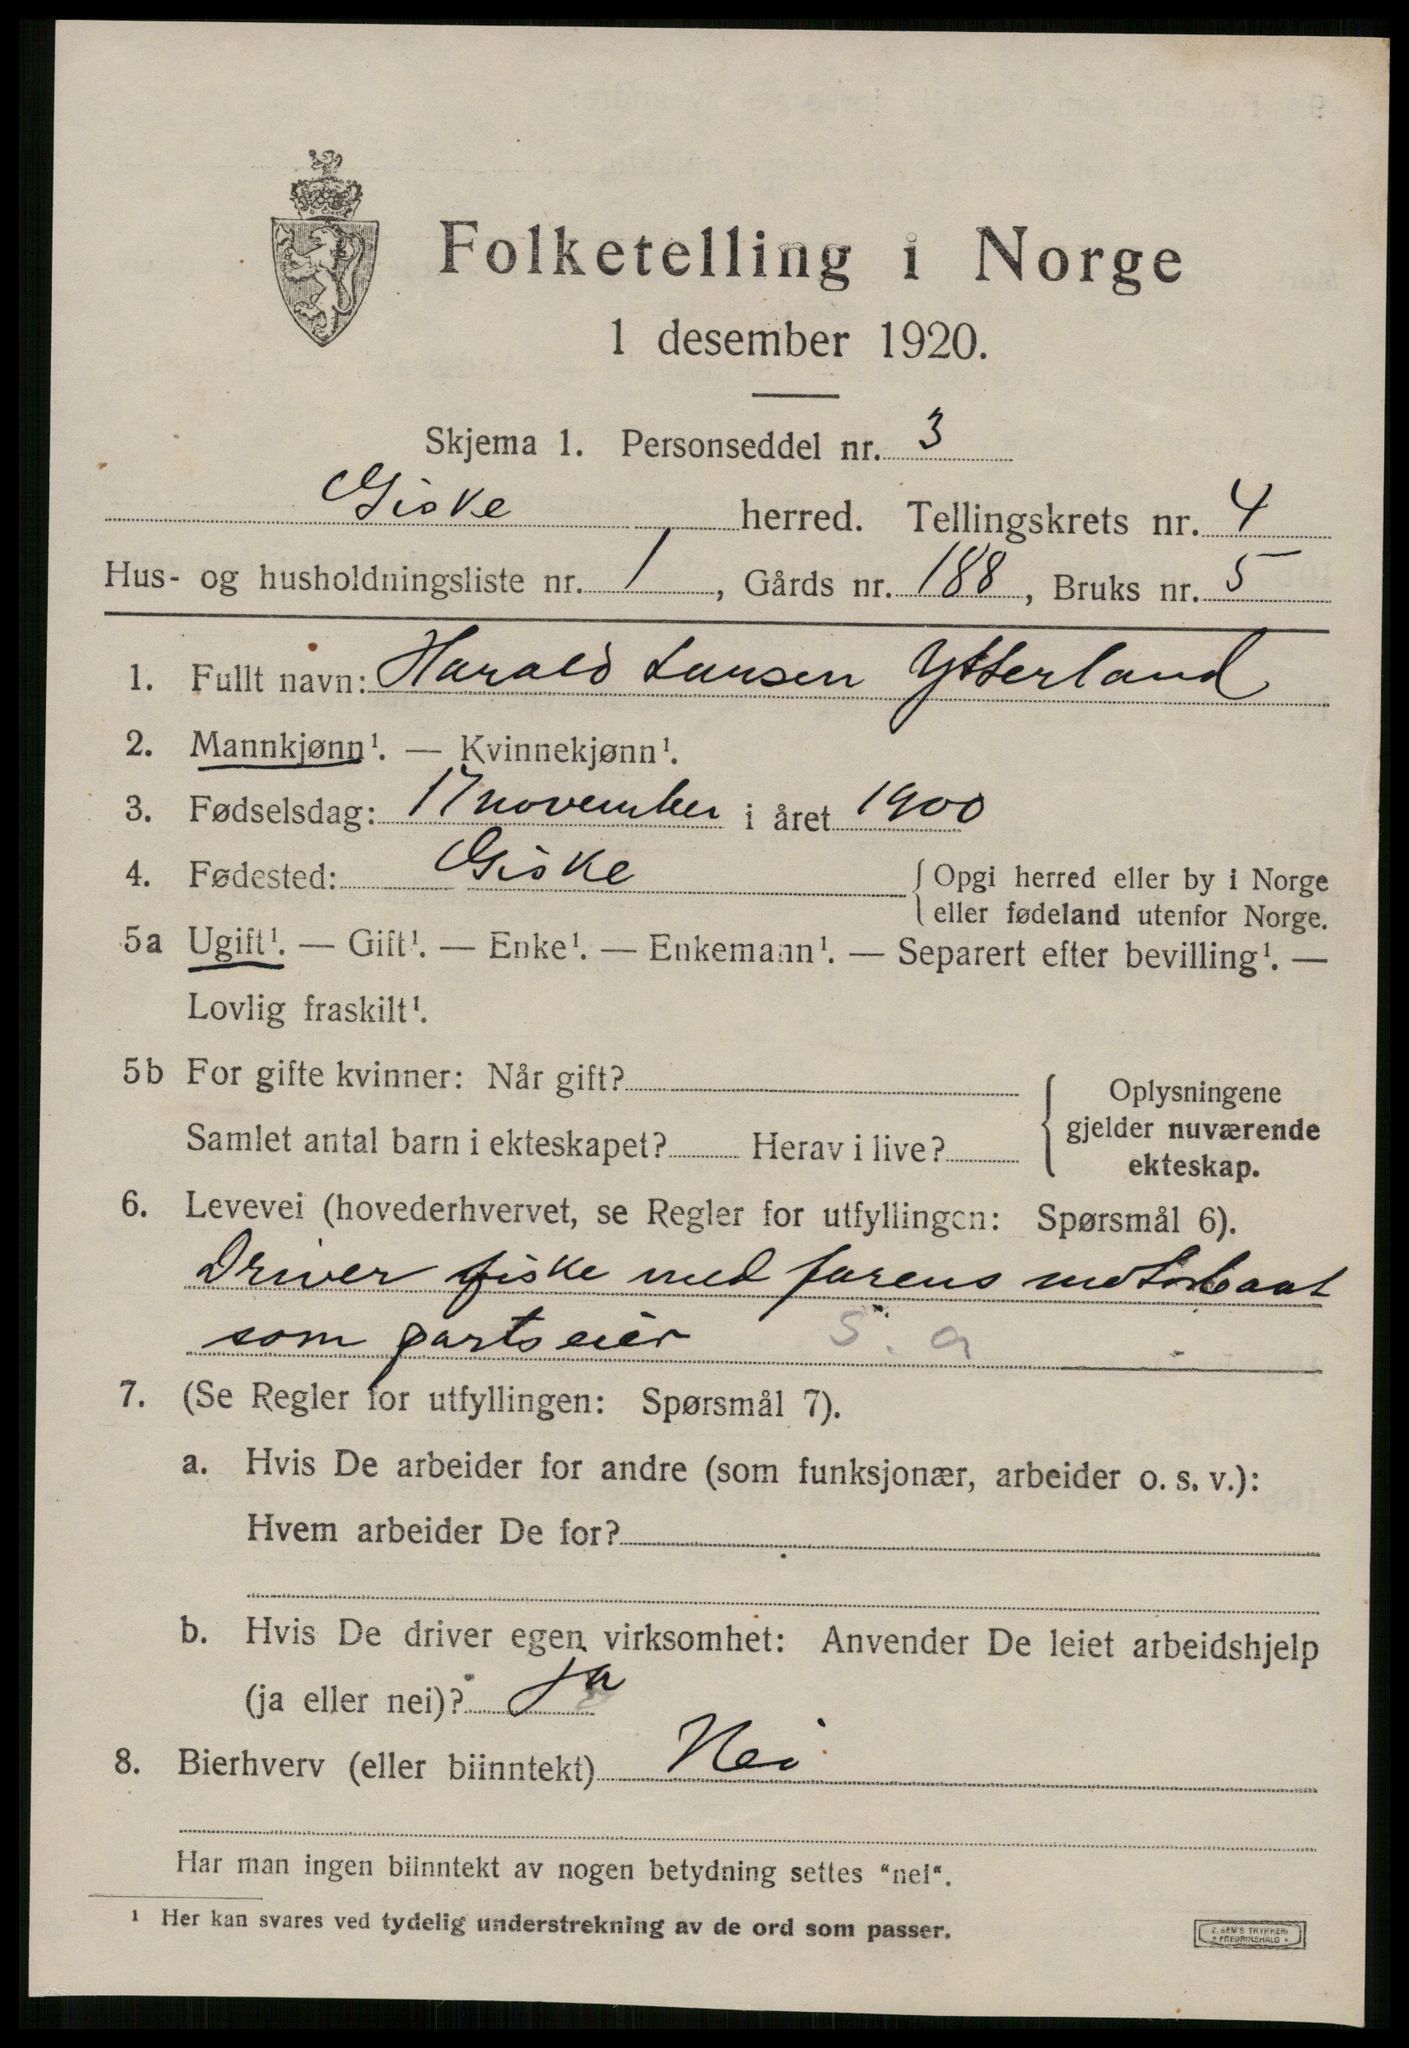 Folketelling i Norge
1 desember 1920.
Skjema 1. Personseddel nr. 3
Giske herred. Tellingskrets nr. 4
Hus- og husholdningsliste nr. 1, Gårds nr. 188, Bruks nr. 5
1. Fullt navn: Harald Larsen Ytterland
2. Mannkjønn¹. — Kvinnekjønn¹.
3. Fødselsdag: 17 november i året 1900
4. Fødested: Giske { Opgi herred eller by i Norge
eller fødeland utenfor Norge.
5a Ugift¹. — Gift¹. — Enke¹. — Enkemann¹. — Separert efter bevilling¹. —
Lovlig fraskilt¹.
5b For gifte kvinner: Når gift?
Samlet antal barn i ekteskapet? Herav i live?
{ Oplysningene
gjelder nuværende
ekteskap.
6. Levevei (hovederhvervet, se Regler for utfyllingen: Spørsmål 6).
Driver fiske med farens motorbaat
som partseier S. a
7. (Se Regler for utfyllingen: Spørsmål 7).
a. Hvis De arbeider for andre (som funksjonær, arbeider o. s. v.):
Hvem arbeider De for?
b. Hvis De driver egen virksomhet: Anvender De leiet arbeidshjelp
(ja eller nei)? ja
8. Bierhverv (eller biinntekt) Nei
Har man ingen biinntekt av nogen betydning settes "nei".
¹ Her kan svares ved tydelig understrekning av de ord som passer.
Z. SEM'S TRYKKERI
FREDRIKSHALD